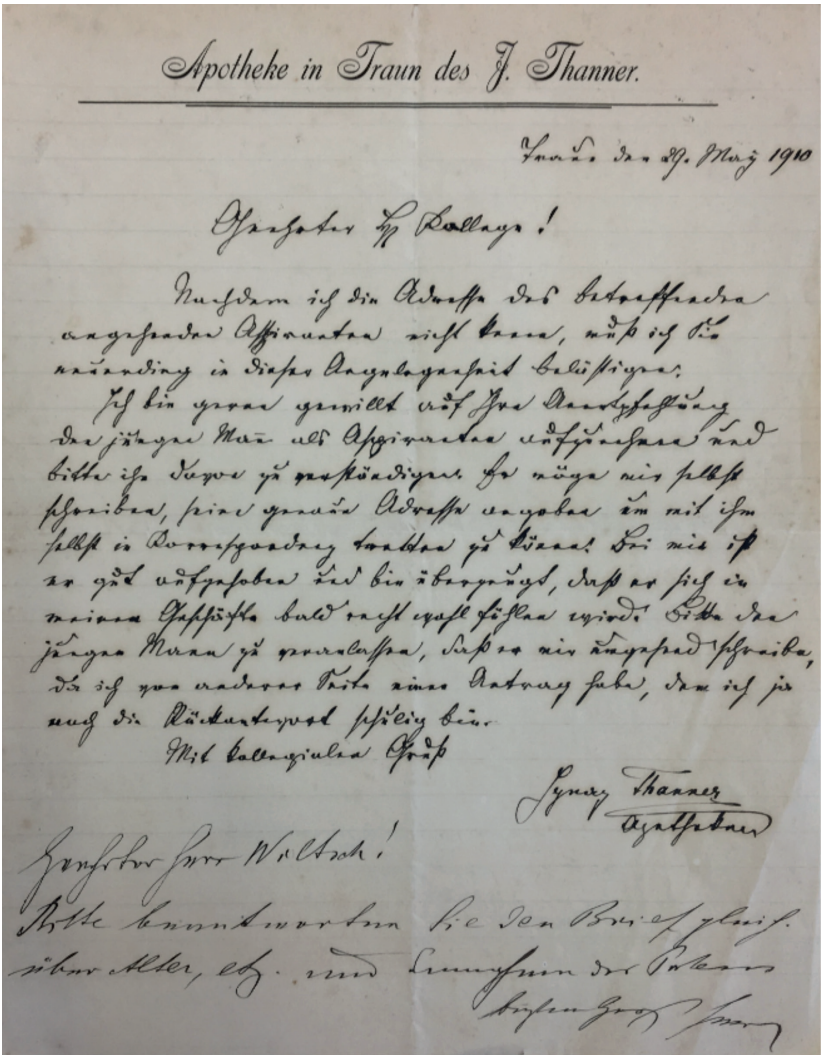 Apotheke in Traun des J. Thanner.
Traun den 29. May 1910
Geehrter H Kollege!
Nachdem ich die Adresse des betreffenden
angehenden Aspiranten nicht kenne, muß ich Sie
neuerding in dieser Angelegenheit belästigen.
Ich bin gerne gewillt auf Ihre Anempfehlung
den jungen Mann als Aspiranten aufzunehmen und
bitte ihn davon zu verständigen. Er möge mir selbst
schreiben, seine genaue Adresse angeben um mit ihm
selbst in Korrespondenz tretten zu können. Bei mir ist
er gut aufgehoben und bin überzeugt, daß er sich in
meinem Geschäfte bald recht wohl fühlen wird. Bitte den
jungen Mann zu veranlassen, daß er mir umgehend schreibe,
da ich von anderer Seite einen Antrag habe, dem ich ja
noch die Rückantwort schulig bin.
Mit kollegialen Gruß
Ignaz Thanner
Apotheker
Geehrter Herr Woltsch!
Bitte beantworten Sie den Brief gleich.
über Alter, etz. und des
besten Gruß